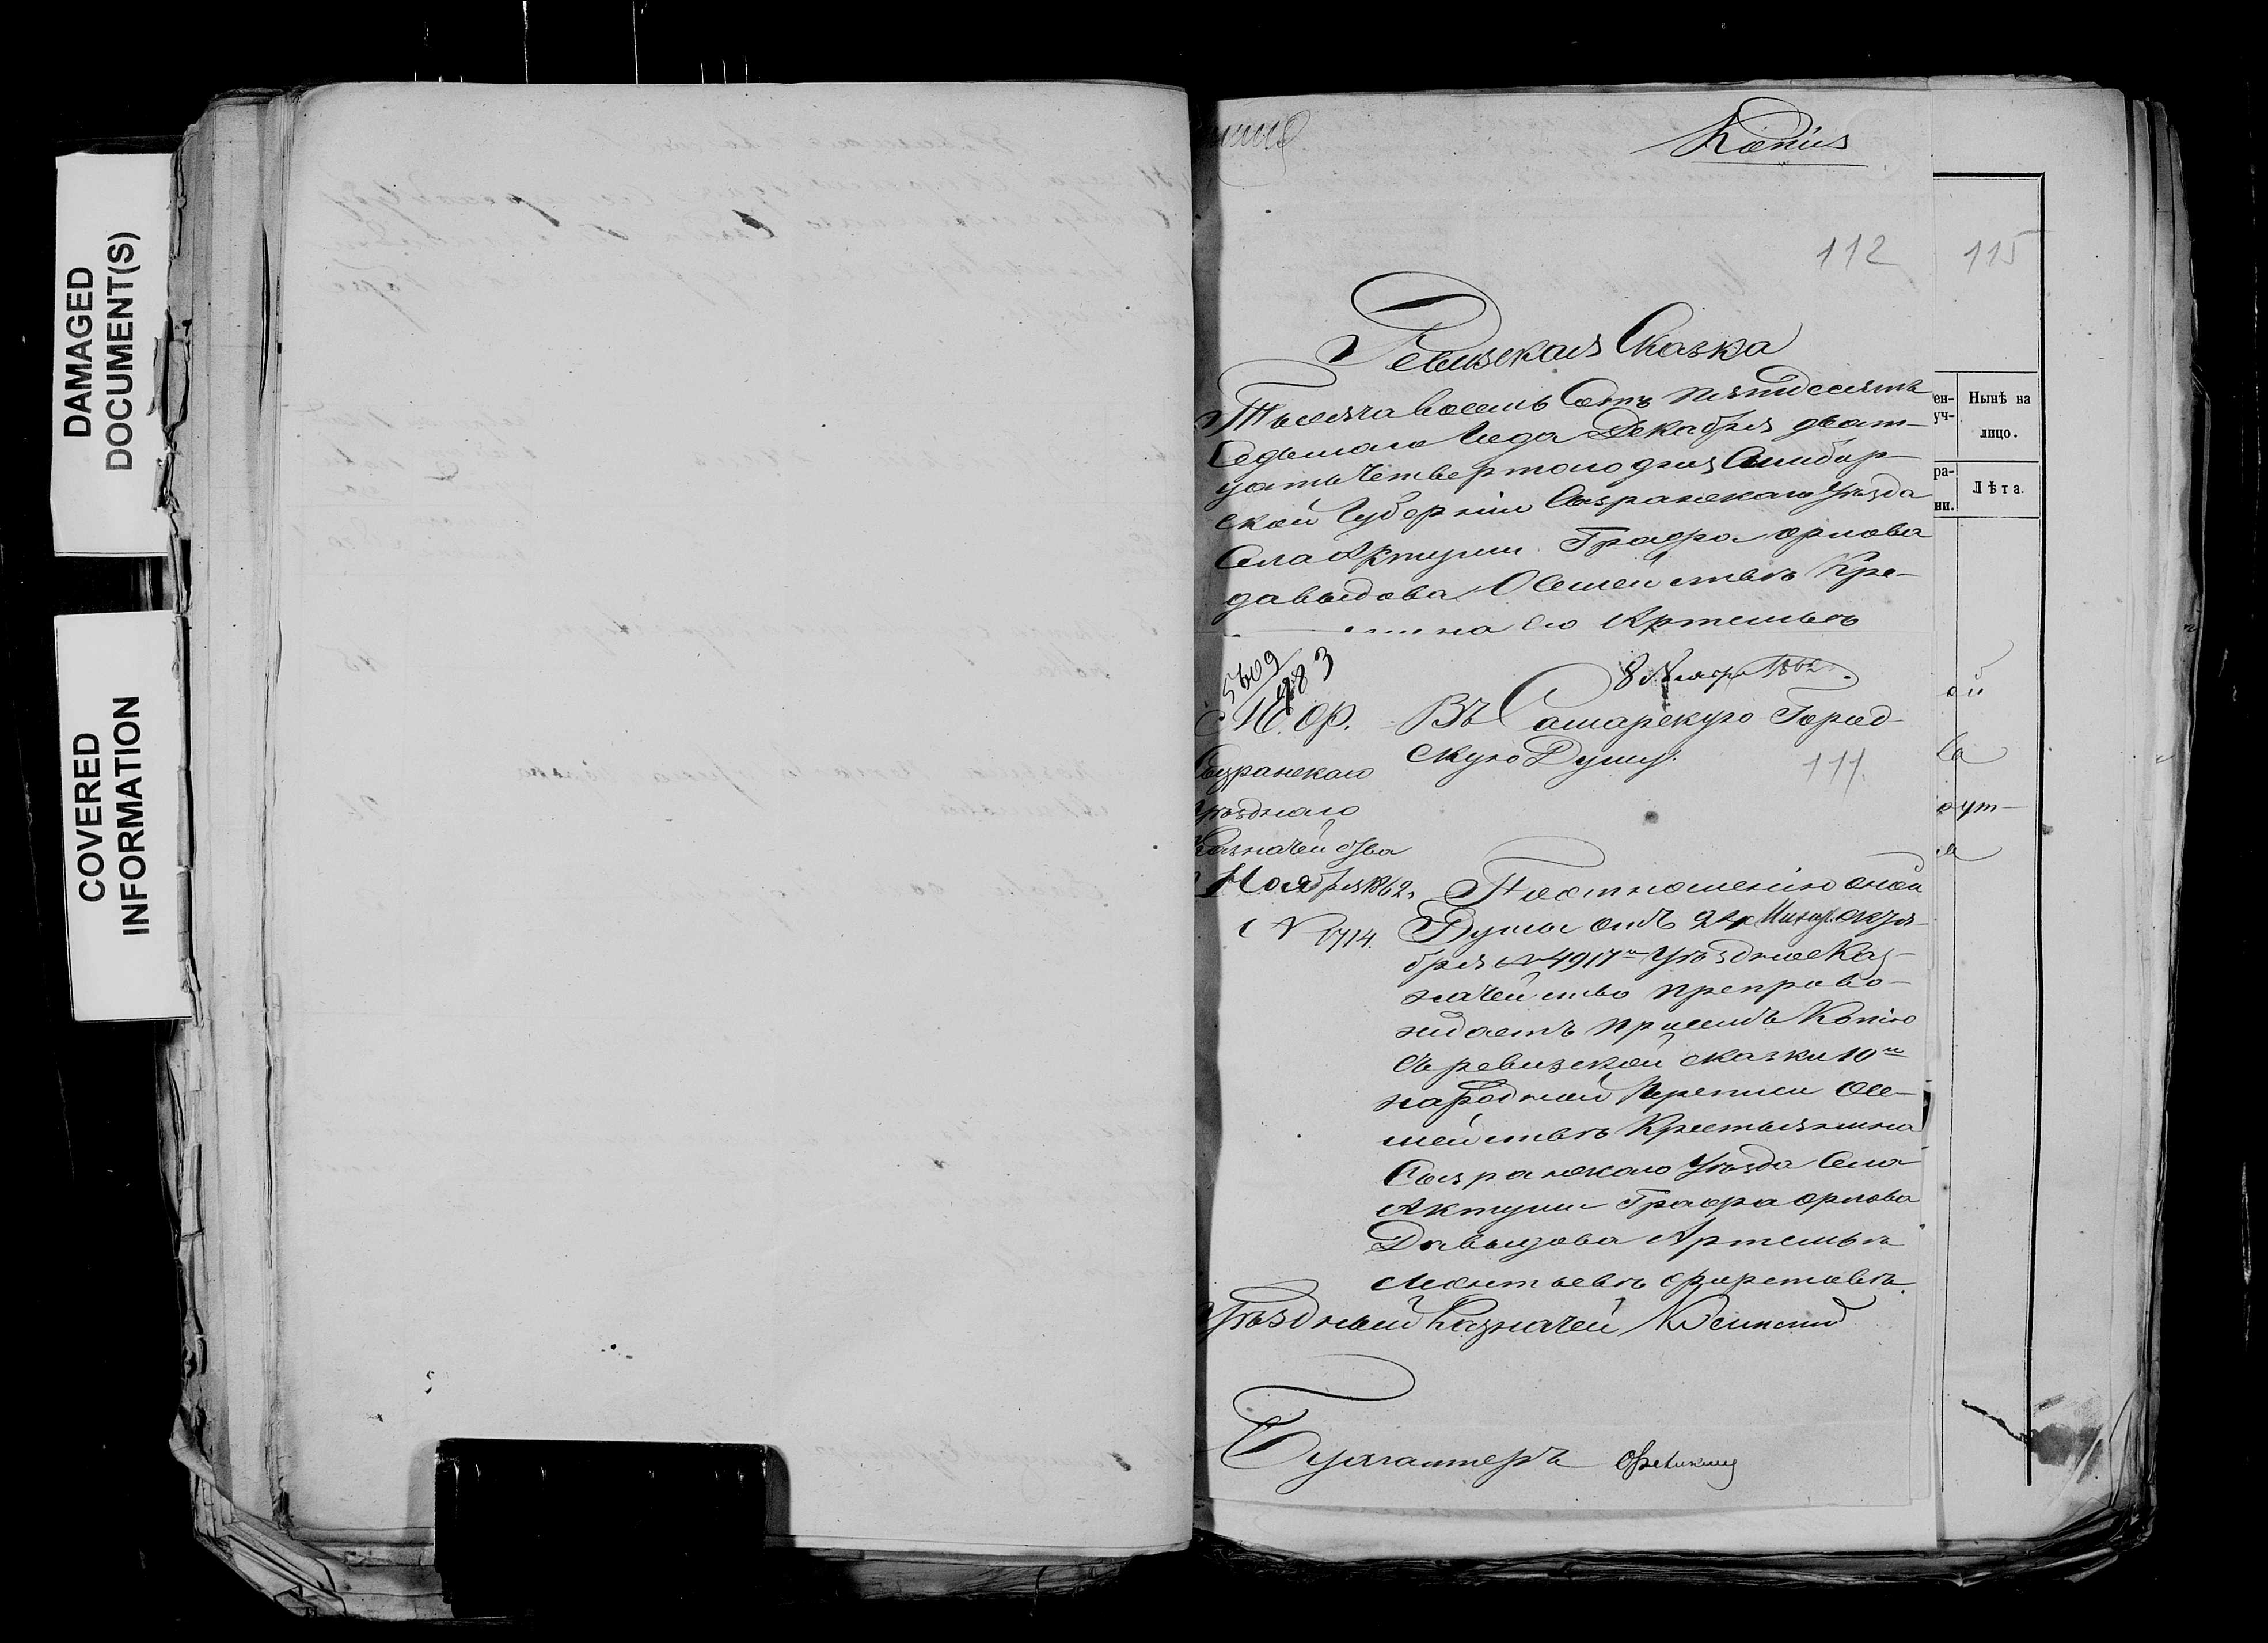 DAMAGED
DOCUMENT(S)
COVERED
INFORMATION
Копія
112
115
Ревизская Сказка
Тысяча восемь Сотъ пятидесять
Седьмаго Года Декабря двад-
цать Четвертаго дня Симбир-
ской Губерніи Сызранскаго Уѣзда
Села Актуши Графа Орлова
давыдова О Семействѣ Кре-
на его Артемьѣ
ен-
уч-
Нынѣ на
лицо.
ра-
ни.
Лѣта.
5609
783
8 Ноября 1862
М. Ф.
Сызранскаго
Уѣзднаго
Казначейства
Ноября 1862 г.
№ 1714.
Въ Самарскую Город-
скую Думу.
111
По отношенію оной
Думы отъ 24 Минув. октя-
бря № 4917 Уѣздное Каз-
начейство препрово-
ждаетъ присемъ Копію
съ ревизской сказки 10й
народной Переписи о се-
мействѣ Крестьянина
Сызранскаго Уѣзда Села
Актуши Графа Орлова
Давыдова Артемьѣ
Леонтьевѣ
Уѣздный Казначей
Бухгалтеръ
ой
ва
оут-